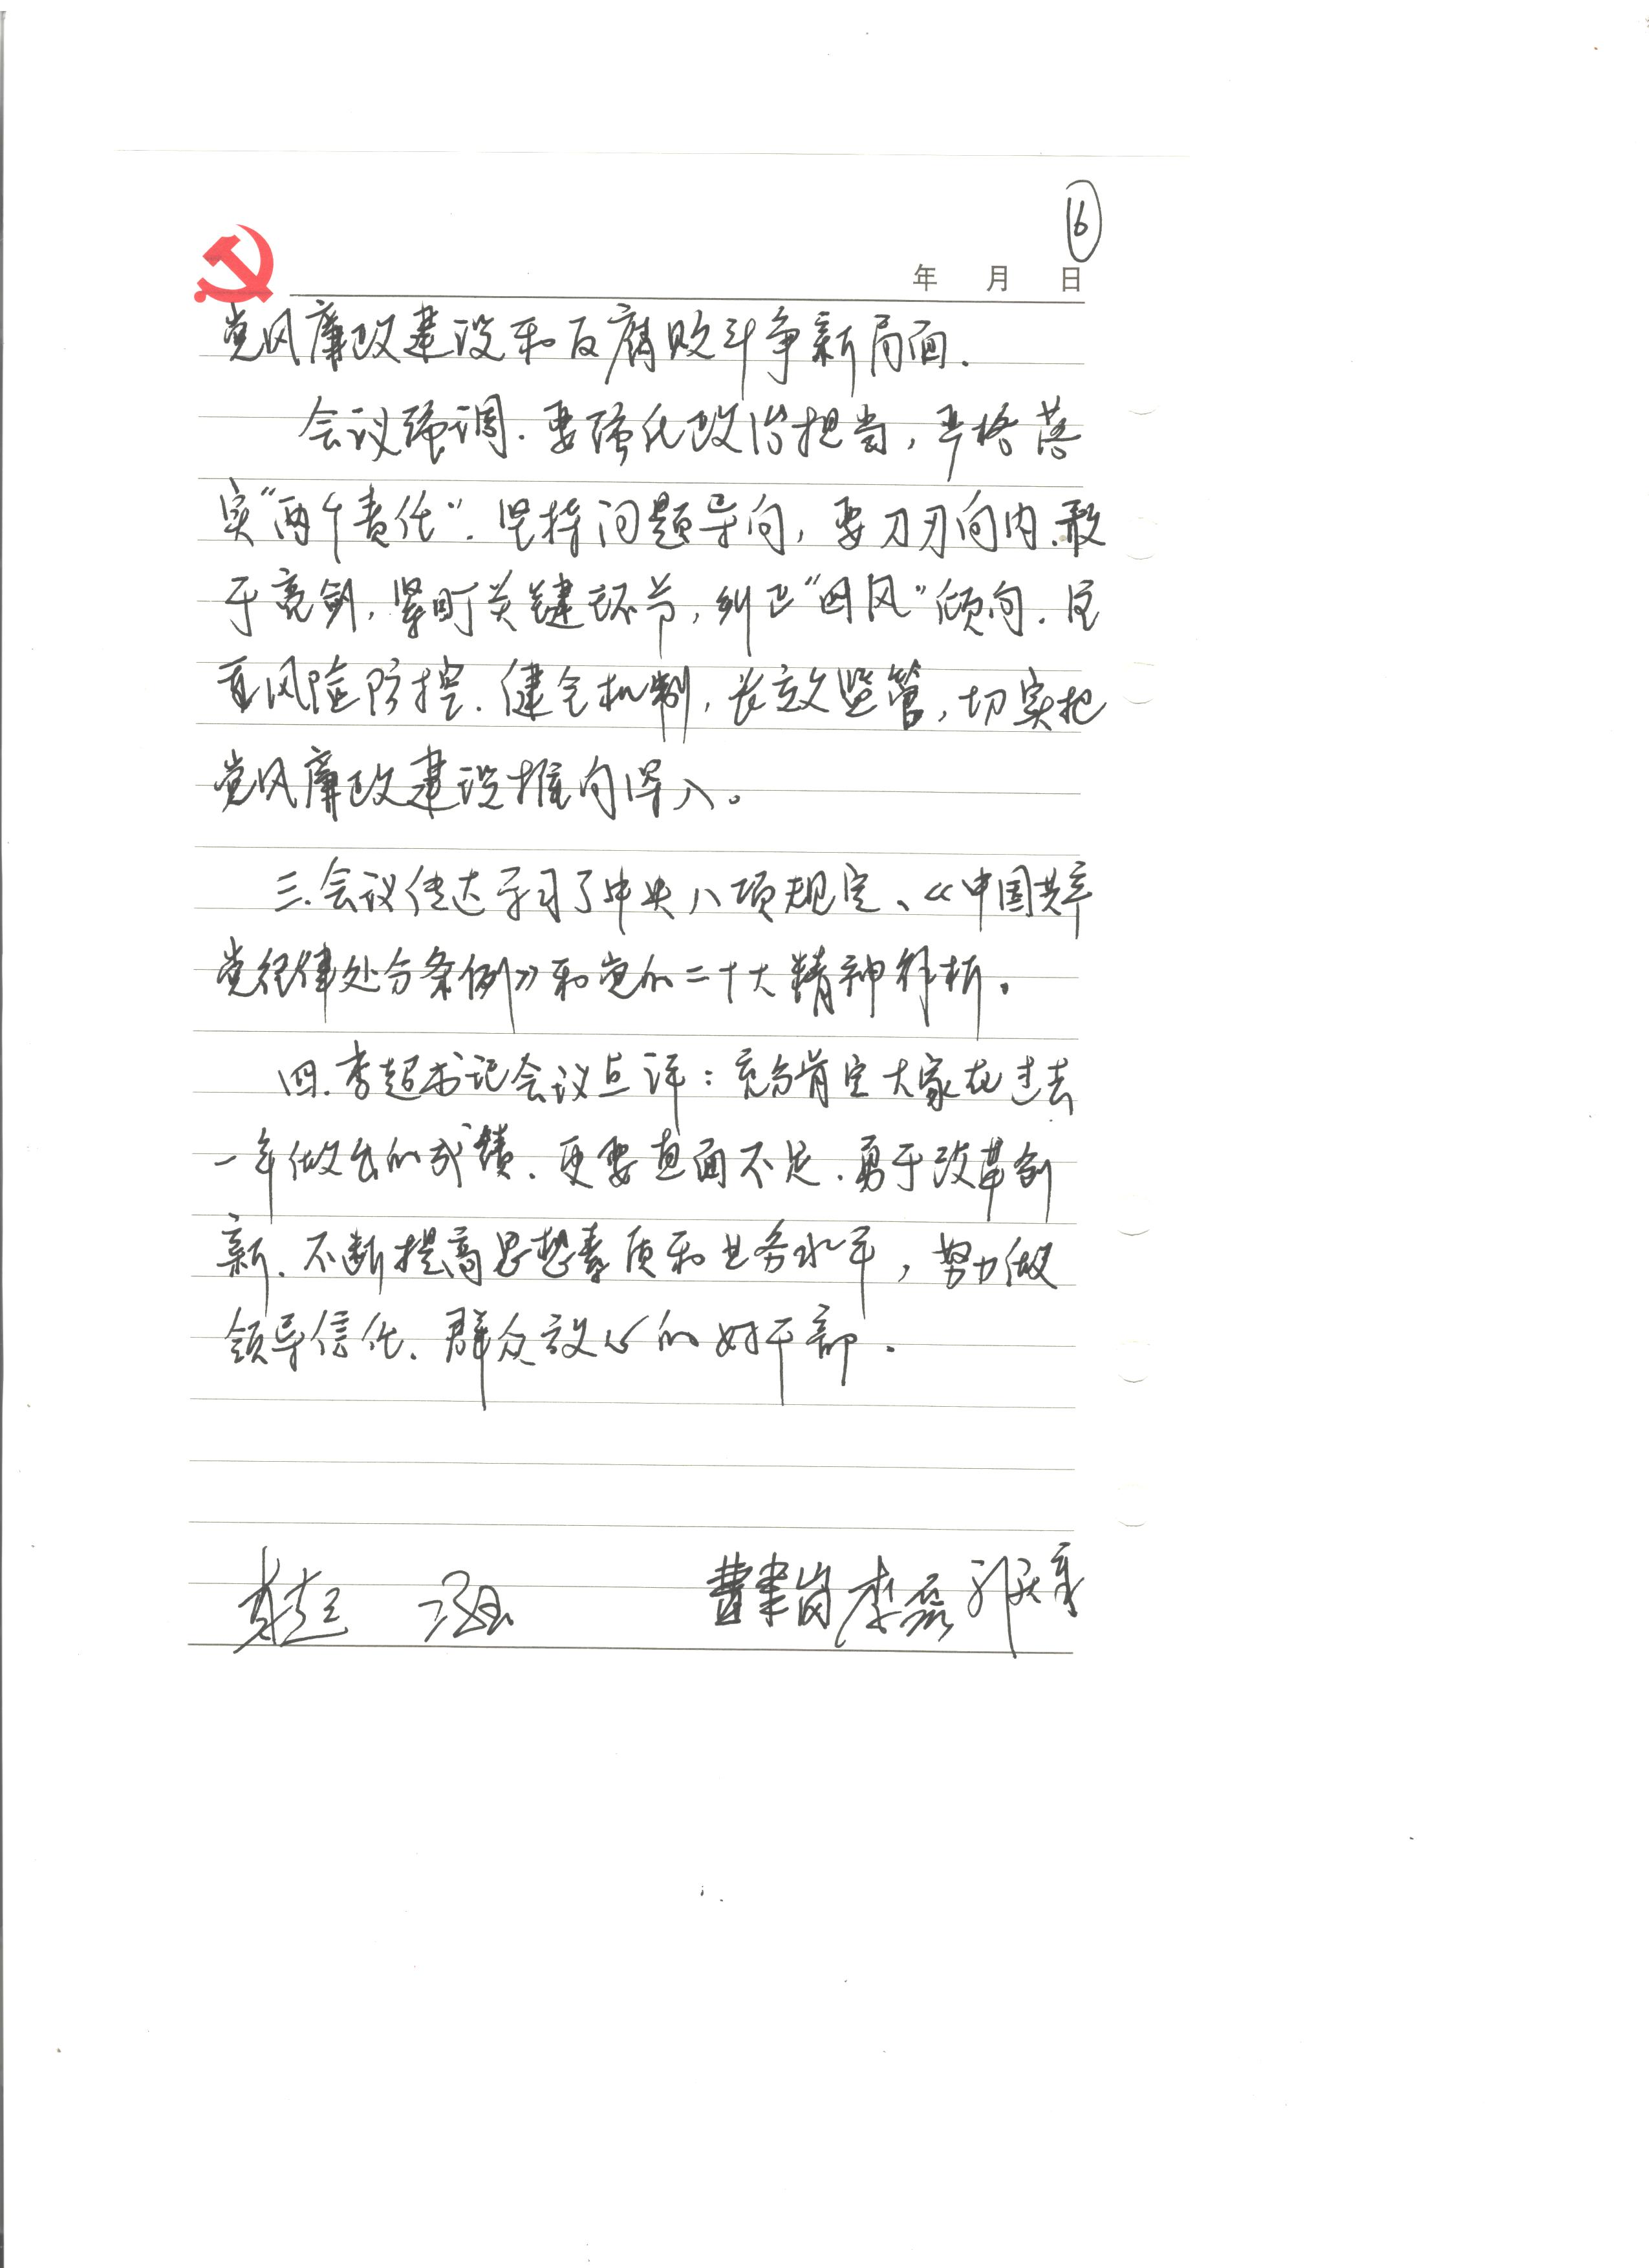 ⑯
年 月 日
党风廉政建设和反腐败斗争新局面.
会议强调.要强化政治担当,严格落
实“两个责任”.坚持问题导向,要刀刃向内.敢
于亮剑,紧盯关键环节,纠正“四风”倾向.注
重风险防控.健全机制,长效监管,切实把
党风廉政建设推向深入。
三.会议传达学习了中央八项规定、《中国共产
党纪律处分条例》和党的二十大精神解析。
四.李超书记会议点评:充分肯定大家在过去
一年做出的成绩.更要直面不足.勇于改革创
新.不断提高思想素质和业务水平,努力做
领导信任.群众放心的好干部.
李超 曹聿岗 李磊